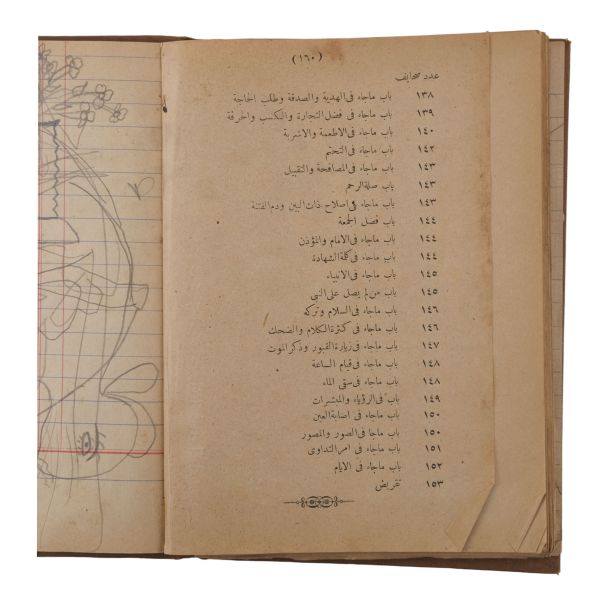 (١٦٠)
عدد صحايف
١٣٨ باب ماجاء فى الهدية والصدقة وطلب الحاجة
١٣٩ باب ماجاء فى فضل التجارة والتكسب والحرفة
١٤٠ باب ماجاء فى الاطعمة والاشربة
١٤٢ باب ماجاء فى التختم
١٤٣ باب ماجاء فى المصافحة والتقبيل
١٤٣ باب صلة الرحم
١٤٣ باب ماجاء فى اصلاح ذات البين وذم الفتنة
١٤٤ باب فضل الجمعة
١٤٤ باب ماجاء فى الامام والمؤذن
١٤٤ باب ماجاء فى كلمة الشهادة
١٤٥ باب ماجاء فى الانبياء
١٤٥ باب من لم يصل على النبى
١٤٦ باب ماجاء فى السلام وتركه
١٤٦ باب ماجاء فى كثرة الكلام والضحك
١٤٧ باب ماجاء فى زيارة القبور وذكر الموت
١٤٨ باب ماجاء فى قيام الساعة
١٤٨ باب ماجاء فى سقى الماء
١٤٩ باب فى الرؤياء والمبشرات
١٥٠ باب ماجاء فى اصابة العين
١٥٠ باب ماجا فى الصور والمصور
١٥١ باب ماجا فى امر التداوى
١٥٢ باب ماجاء فى الايام
١٥٣ تقريض